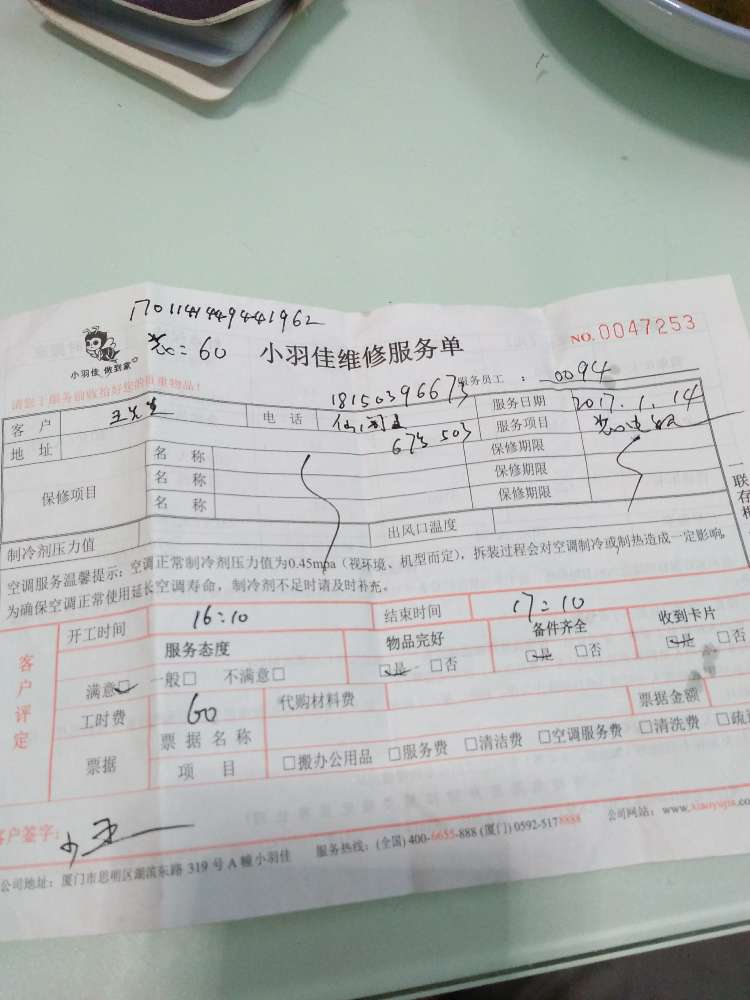 170114149441962
NO.0047253
小羽佳 做到家
60
小羽佳维修服务单
请您于服务前收拾好您的贵重物品!
服务员工 : 0094
客户 王先生 电话 18150396673 服务日期 2017.1.14
地址 673 503 服务项目
保修项目 名称 保修期限
名称 保修期限
名称 保修期限
制冷剂压力值 出风口温度
空调服务温馨提示:空调正常制冷剂压力值为0.45mpa(视环境、机型而定),拆装过程会对空调制冷或制热造成一定影响。
为确保空调正常使用延长空调寿命,制冷剂不足时请及时补充。
一联存根
客户评定
开工时间 16:10 结束时间 17:10
服务态度 物品完好 备件齐全 收到卡片
满意☑ 一般□ 不满意□ ☑是 □否 ☑是 □否 ☑是 □否
工时费 60 代购材料费 票据金额
票据 票据名称
项目 □搬办公用品 □服务费 □清洁费 □空调服务费 □清洗费 □疏
客户签字: 小王
公司地址:厦门市思明区湖滨东路 319 号 A 幢小羽佳 服务热线:(全国) 400-6655-888 (厦门) 0592-5178888 公司网站:www.xiaoyujia.co